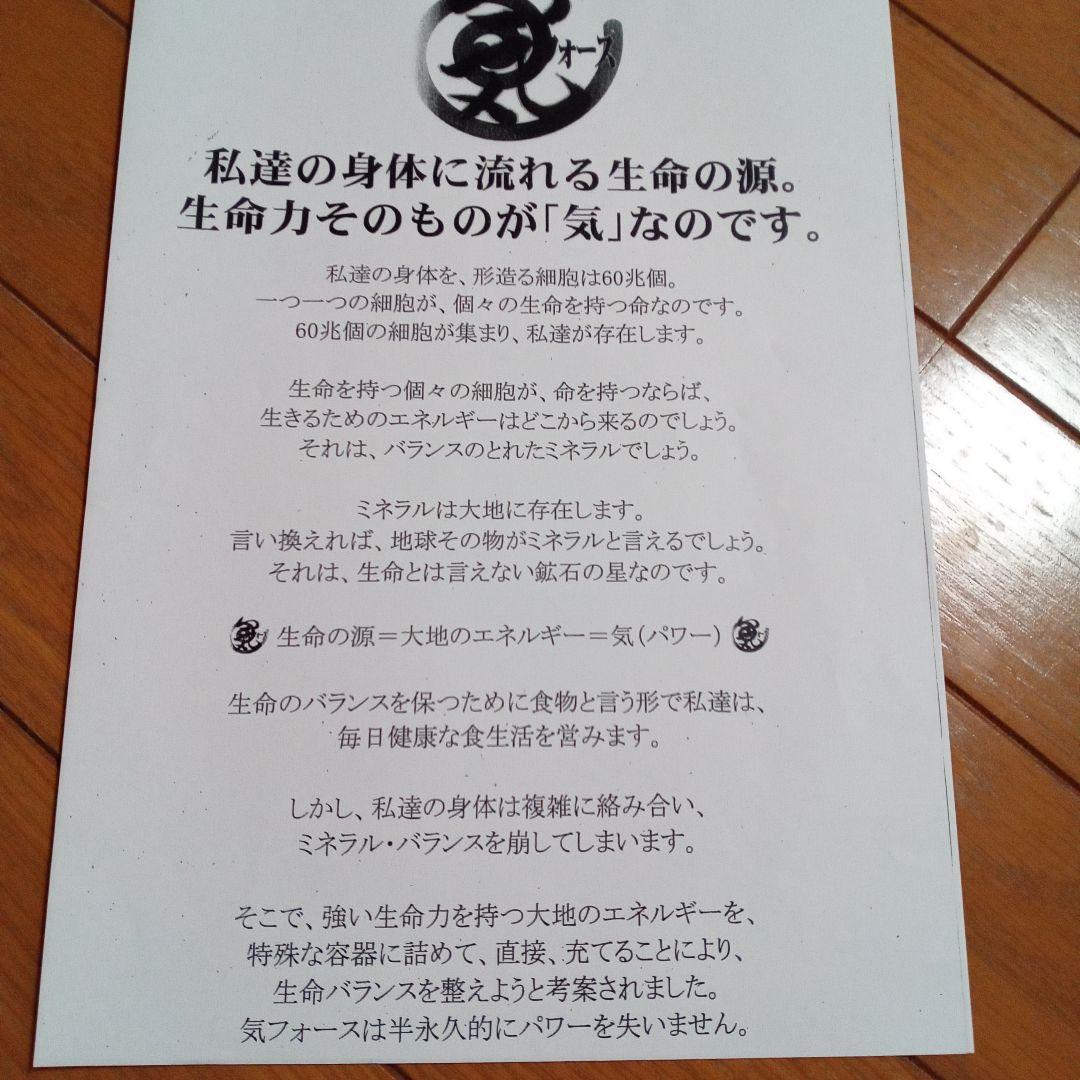 気
フォース
私達の身体に流れる生命の源。
生命力そのものが「気」なのです。
私達の身体を、形造る細胞は60兆個。
一つ一つの細胞が、個々の生命を持つ命なのです。
60兆個の細胞が集まり、私達が存在します。
生命を持つ個々の細胞が、命を持つならば、
生きるためのエネルギーはどこから来るのでしょう。
それは、バランスのとれたミネラルでしょう。
ミネラルは大地に存在します。
言い換えれば、地球その物がミネラルと言えるでしょう。
それは、生命とは言えない鉱石の星なのです。
生命の源＝大地のエネルギー＝気（パワー）
生命のバランスを保つために食物と言う形で私達は、
毎日健康な食生活を営みます。
しかし、私達の身体は複雑に絡み合い、
ミネラル・バランスを崩してしまいます。
そこで、強い生命力を持つ大地のエネルギーを、
特殊な容器に詰めて、直接、充てることにより、
生命バランスを整えようと考案されました。
気フォースは半永久的にパワーを失いません。